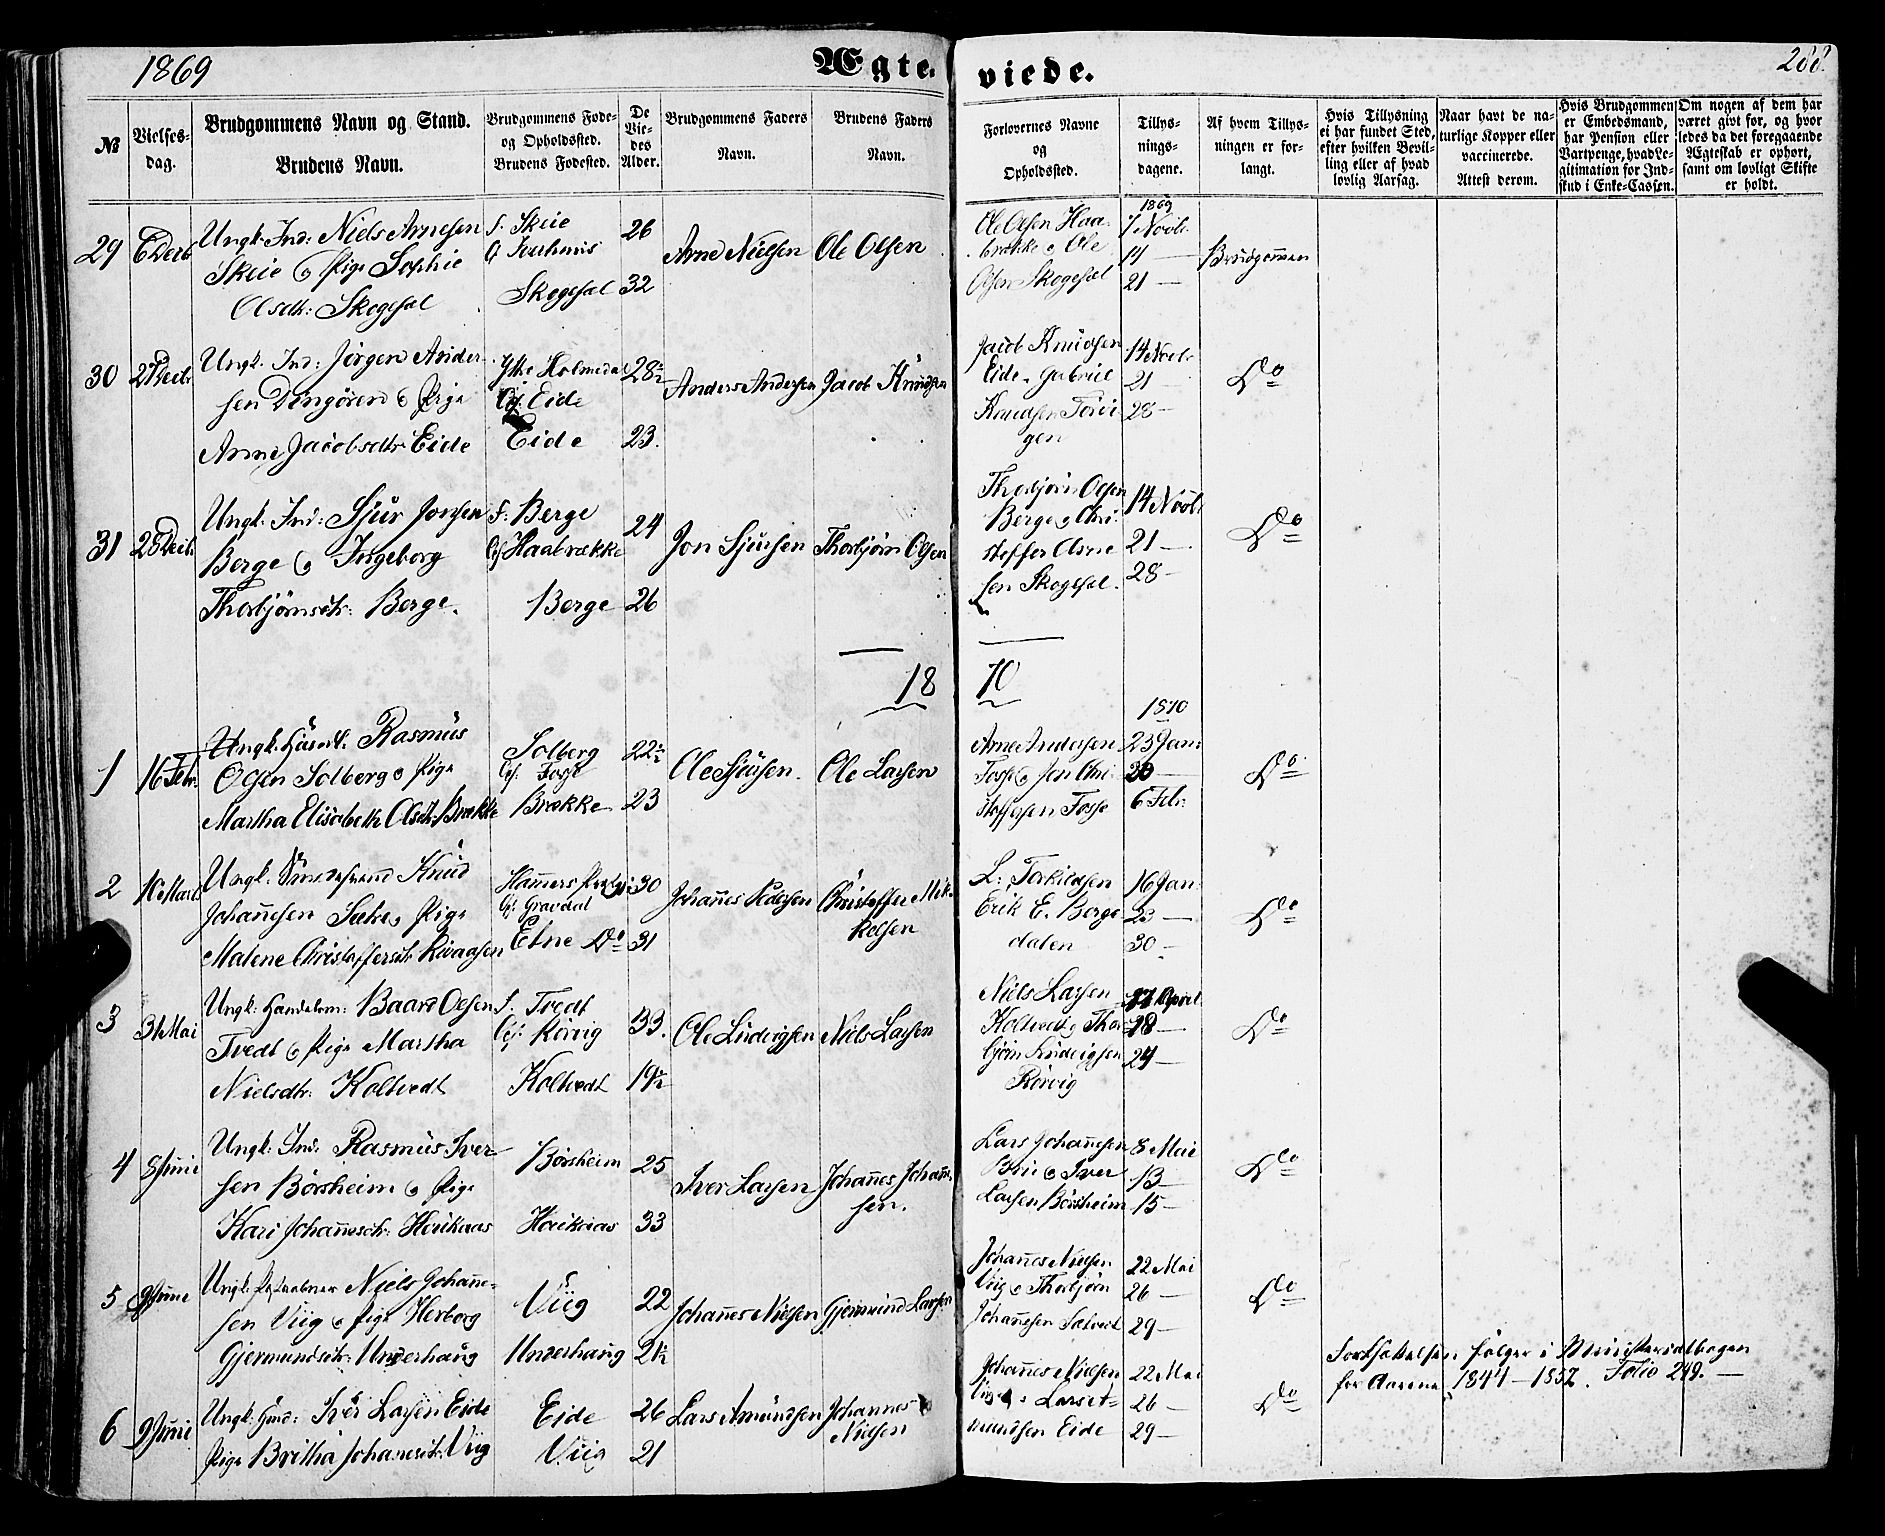 1869
Ægte.
viede.
288.
№
Vielses-
dag.
Brudgommens Navn og Stand.
Brudens Navn.
Brudgommens Føde-
og Opholdssted.
Brudens Fødested.
De
Vie-
des
Alder.
Brudgommens Faders
Navn.
Brudens Faders
Navn.
Forlovernes Navne
og
Opholdssted.
Tillys-
nings-
dagene.
Af hvem Tillys-
ningen er for-
langt.
Hvis Tillysning
ei har fundet Sted,
efter hvilken Bevil-
ling eller af hvad
lovlig Aarsag.
Naar havt de na-
turlige Kopper eller
vaccinerede.
Attest derom.
Hvis Brudgommen
er Embedsmand,
har Pension eller
Vartpenge, hvad Le-
gitimation for Ind-
skud i Enke-Cassen.
Om nogen af dem har
været givt før, og hvor
ledes da det foregaaende
Ægteskab er ophørt,
samt om lovligt Skifte
er holdt.
29
6 Decb
Ungk. Ind: Niels Arnesen
Skeie & Pige Sophie
Olsdtr: Skogesal
f. Skeie
Skogesal
26
32
Arne Nielsen
Ole Olsen
Ole Olsen Haa-
brække & Ole
Olsen Skogesal
1869
7 Novbr
14 —
21 —
Brudgommen
30
27 Decb.
Ungk. Ind: Jørgen Ander-
sen & Pige
Anne Jacobsdtr Eide
Holmedal
Op: Eide
Eide
28½
23.
Anders Andersen
Jacob Knudsen
Jacob Knudsen
Eide, Gabriel
Knudsen
gen
14 Novbr
21
28 —
Do
31
28 Decb.
Ungk. Ind: Sjur Jonsen
Berge & Ingeborg
Thorbjørnsdtr: Berge.
f: Berge
Op: Haabrække
Berge
24
26
Jon Sjursen
Thorbjørn Olsen
Thorbjørn Olsen
Berge & Chri-
stoffer Arne-
sen Skogesal.
14 Novbr
21 —
28 —
Do
18
70
1
16 Febr.
Ungk. Husm: Rasmus
Olsen Solberg & Pige
Martha Elisabeth Olsdtr: Brække
Solberg
Op: Fosse
Brække
22½
23
Ole Sjursen.
Ole Larsen
Arne Andersen
Fosse & Jon Chri-
stoffersen Fosse
1870
23 Jan:
30 —
6 Febr.
Do
2
16 Marts
Ungk. Knud
Johannesen & Pige
Malene Christoffersdtr
Op: Gravdal
Etne Do
30
31
Johannes Pedersen
Christoffer Mik-
kelsen
L: Torkildsen
Erik E. Berge
dalen
16 Jan:
23 —
30 —
Do
3
31 Mai
Ungk: Handelsm: Baard Olsen
Tvedt & Pige Martha
Nielsdtr: Koltvedt
f: Tvedt
Op: Rørvig
Koltvedt
33.
19½
Ole Ludvigsen
Niels Larsen
Niels Larsen
Koltvedt & Thor-
bjørn Ludvigsen
Rørvig
17 April
18 —
24 —
Do
4
8 Juni
Ungk: Ind: Rasmus Iver-
sen Børsheim & Pige
Kari Johannesdtr: Houkaas
Børsheim
Houkaas
25
33
Iver Larsen
Johannes Johan-
sen.
Lars Johannesen
& Iver
Larsen Børsheim
8 Mai
13 —
15 —
Do
5
9 Juni
Ungk: Niels Johanne-
sen Viig & Pige Herborg
Gjermundsdtr: Underhaug
Viig
Underhaug
22
21½
Johannes Nielsen
Gjermund Larsen
Johannes Nielsen
Viig & Thorbjørn
Johannesen
22 Mai
26 —
29 —
Do
6
9 Juni
Ungk: Iver Larsen Eide
Pige Britha Johannesdtr. Viig
Eide
Viig
26
21
Lars Amundsen
Johannes
Nielsen
Johannes Nielsen
Viig & Lars
Amundsen Eide
22 Mai
26 —
29 —
Do
Fortsættelsen følger i Ministerialbogen
for Aarene 1844 — 1857. Folio 249. —